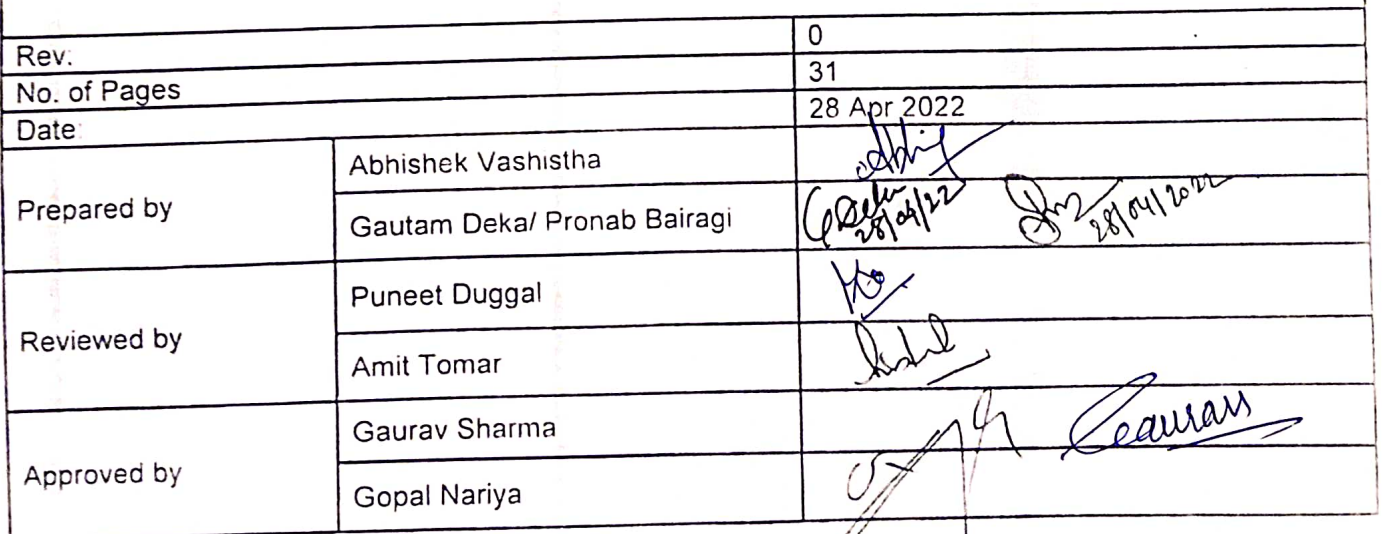 Rev. 0
No. of Pages 31
Date: 28 Apr 2022
Prepared by
Abhishek Vashistha
Gautam Deka/ Pronab Bairagi
GDeka 28/04/22
28/04/2022
Reviewed by
Puneet Duggal
Amit Tomar
Approved by
Gaurav Sharma
Gaurav
Gopal Nariya